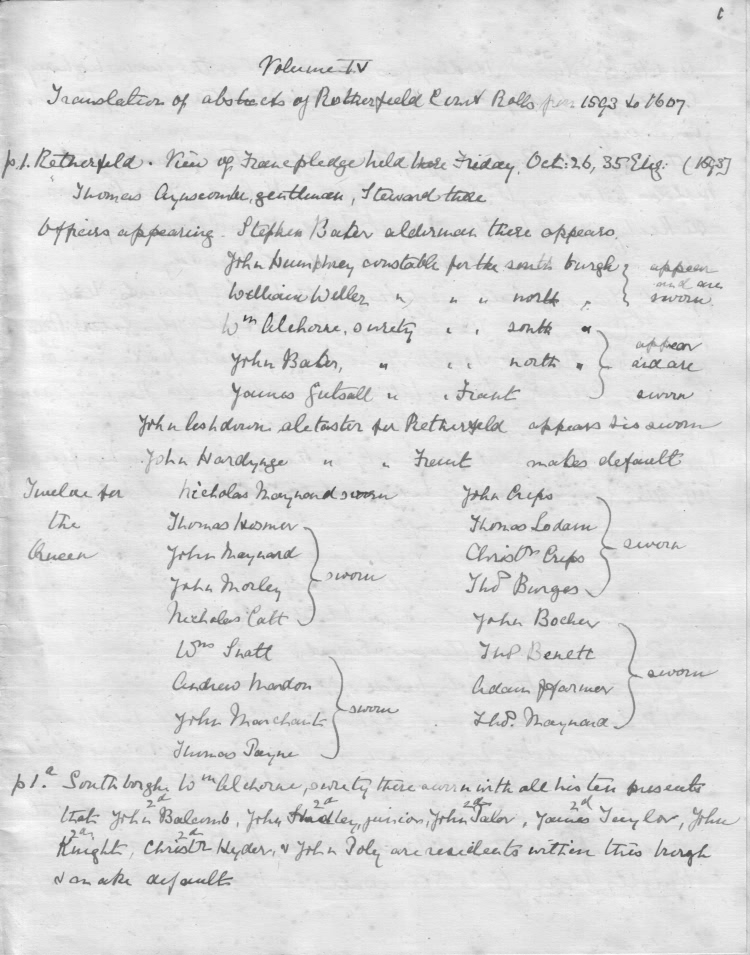 1
Volume IV
Translation of abstracts of Rotherfield Court Rolls from 1593 to 1607.
p1. Retherfeld. View of Francpledge held there Friday, Oct: 26, 35 Eliz: (1593)
Thomas Aynscombe, gentleman, Steward there
Officers appearing. Stephen Baker alderman there appears
John Humphrey constable for the south burgh } appear
William Weller " " " north " } and are sworn
Wm Alchorne, surety " " south " } appear
John Baker, " " " north " } and are
James Gutsall " " Frant } sworn
John Ashdown aletaster for Retherfeld appears & is sworn
John Hardynge " " Frant makes default
Twelve for Nicholas Maynard sworn John Crips
the Thomas Hosmer Thomas Lodam
Queen John Maynard } sworn Christr Crips } sworn
John Morley Tho Burges
Nicholas Catt John Bocher
Wm Snatt Tho Benett
Andrew Mardon } sworn Adam ffarmer } sworn
John Marchant Tho. Maynard
Thomas Payne
p1.a Southborghe Wm Alchorne, surety there sworn with all his ten presents
that John Balcomb, 2d John Hadley, junior, 2d John Salor, 2d James Taylor, 2d John
Knight, 2d Christr Hyder, 2d & John Poly are residents within this burgh
& make default